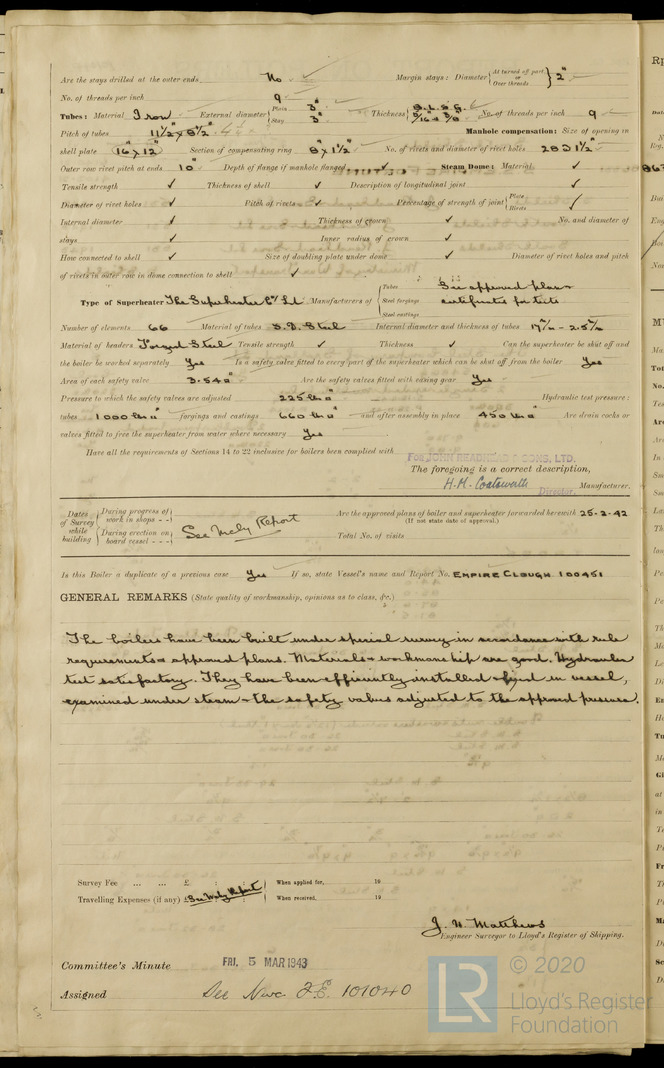 Are the stays drilled at the outer ends No Margin stays: Diameter { At turned off part, or Over threads } 2"
No. of threads per inch 9
Tubes: Material Iron External diameter { Plain 3" Stay 3" Thickness { 8 L.S.G. 5/16 & 3/8" No. of threads per inch 9
Pitch of tubes 11 1/2" x 8 1/2" Manhole compensation: Size of opening in
shell plate 16" x 12" Section of compensating ring 8" x 1 1/2" No. of rivets and diameter of rivet holes 28 @ 1 1/2"
Outer row rivet pitch at ends 10" Depth of flange if manhole flanged ✓ Steam Dome: Material ✓
Tensile strength ✓ Thickness of shell ✓ Description of longitudinal joint ✓
Diameter of rivet holes ✓ Pitch of rivets ✓ Percentage of strength of joint { Plate Rivets ✓
Internal diameter ✓ Thickness of crown ✓ No. and diameter of
stays ✓ Inner radius of crown ✓
How connected to shell ✓ Size of doubling plate under dome ✓ Diameter of rivet holes and pitch
of rivets in outer row in dome connection to shell ✓
Type of Superheater The Superheater Co Ld Manufacturers of { Tubes Steel forgings Steel castings See approved plans certificates for tests
Number of elements 66 Material of tubes S.D. Steel Internal diameter and thickness of tubes 17 m/m - 2.5 m/m
Material of headers Forged Steel Tensile strength ✓ Thickness ✓ Can the superheater be shut off and
the boiler be worked separately Yes Is a safety valve fitted to every part of the superheater which can be shut off from the boiler Yes
Area of each safety valve 3.54 □" Are the safety valves fitted with easing gear Yes
Pressure to which the safety valves are adjusted 225 lb □" Hydraulic test pressure:
tubes 1000 lb □" forgings and castings 660 lb □" and after assembly in place 450 lb □" Are drain cocks or
valves fitted to free the superheater from water where necessary Yes
Have all the requirements of Sections 14 to 22 inclusive for boilers been complied with
For JOHN READHEAD & SONS, LTD.
The foregoing is a correct description,
H.M. Coatsworth Director. Manufacturer.
Dates of Survey while building { During progress of work in shops - - During erection on board vessel - - - } See Mchy Report
Are the approved plans of boiler and superheater forwarded herewith 25-2-42
(If not state date of approval.)
Total No. of visits
Is this Boiler a duplicate of a previous case Yes If so, state Vessel's name and Report No. EMPIRE CLOUGH 100451
GENERAL REMARKS (State quality of workmanship, opinions as to class, &c.)
The boilers have been built under special survey in accordance with rule
requirements & approved plans. Materials & workmanship are good. Hydraulic
test satisfactory. They have been efficiently installed & in vessel,
examined under steam & the safety valves adjusted to the approved pressure.
Survey Fee ... ... £ : : When applied for, 19
Travelling Expenses (if any) £ See Mchy Report When received, 19
J. H. Matthews
Engineer Surveyor to Lloyd's Register of Shipping.
Committee's Minute FRI. 5 MAR 1943
Assigned See Nwc F.E. 101040
LR © 2020
Lloyd's Register
Foundation